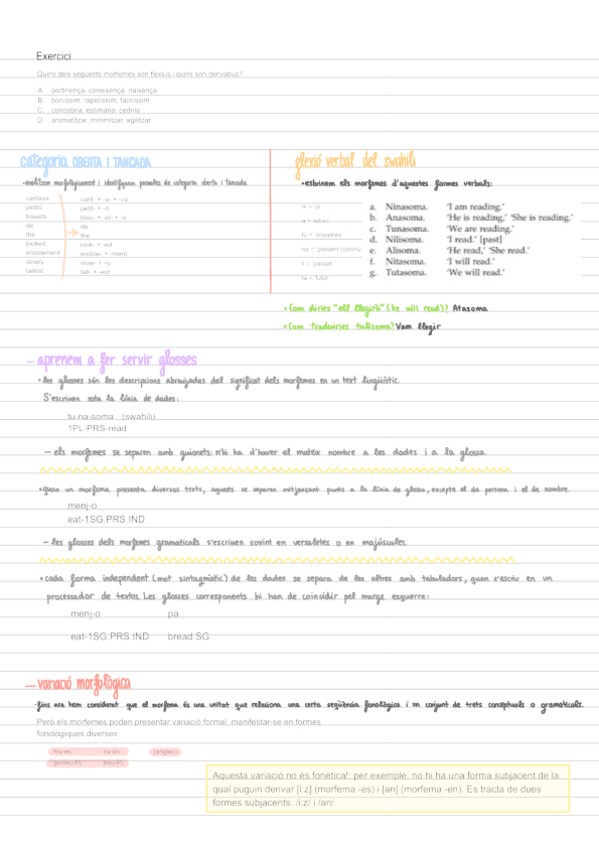 Exercici
Quins dels següents morfemes són flexius i quins són derivatius?
A. pertinença, coneixença, naixença
B. boníssim, rapidíssim, facilíssim
C. concebria, estimaria, cediria
D. aromatitzar, minimitzar, agilitzar
categoria OBERTA I TANCADA
•analitzem morfològicament i identifiquem paraules de categoria oberta i tancada.
cantava cant- + -a- + -va
petitó petit- + -ó
blauets blau- + -et- + -s
de de
the the
looked look- + -ed
endowment endow- + -ment
slowly slow- + -ly
tallest tall- + -est
flexió verbal del swahili
•esbrinem els morfemes d'aquestes formes verbals:
ni = 'jo'
a = ell(a)
tu = nosaltres
na = 'present continu'
li = 'passat'
ta = 'futur'
a. Ninasoma. 'I am reading.'
b. Anasoma. 'He is reading,' 'She is reading.'
c. Tunasoma. 'We are reading.'
d. Nilisoma. 'I read.' [past]
e. Alisoma. 'He read,' 'She read.'
f. Nitasoma. 'I will read.'
g. Tutasoma. 'We will read.'
•Com diries "ell llegirà" (he will read)? Atasoma
•Com traduiries tulisoma? Vam llegir
– aprenem a fer servir glosses
•les glosses són les descripcions abreujades del significat dels morfemes en un text lingüístic.
S'escriuen sota la línia de dades:
tu-na-soma (swahili)
1PL-PRS-read
– els morfemes se separen amb guionets: n'hi ha d'haver el mateix nombre a les dades i a la glossa.
•quan un morfema presenta diversos trets, aquests se separen mitjançant punts a la línia de glossa, excepte el de persona i el de nombre.
menj-o
eat-1SG.PRS.IND
– les glosses dels morfemes gramaticals s'escriuen sovint en versaletes o en majúscules.
•cada forma independent (mot sintagmàtic) de les dades se separa de les altres amb tabuladors, quan s'escriu en un
processador de textos. Les glosses corresponents hi han de coincidir pel marge esquerre:
menj-o pa
eat-1SG.PRS.IND bread.SG
– variació morfològica
•fins ara hem considerat que el morfema és una unitat que relaciona una certa seqüència fonològica i un conjunt de trets conceptuals o gramaticals.
Però els morfemes poden presentar variació formal, manifestar-se en formes
fonològiques diverses:
fox-es ox-en (anglès)
guineu-PL bou-PL
Aquesta variació no és fonètica!: per exemple, no hi ha una forma subjacent de la
qual puguin derivar [i:z] (morfema -es) i [ən] (morfema -en). Es tracta de dues
formes subjacents: /i:z/ i /ən/.